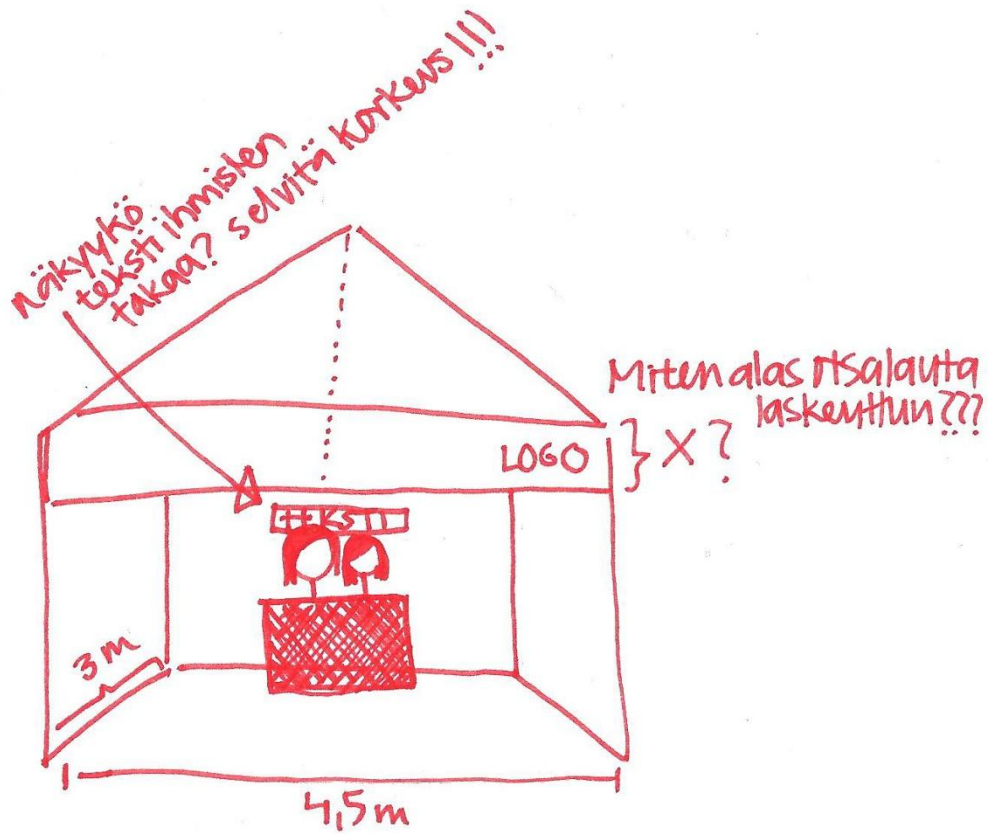 näkyykö
teksti ihmisten
takaa? selvitä korkeus!!!
Miten alas otsalauta
laskeuttun???
LOGO
} X ?
TEKSTI
3 m
4,5 m